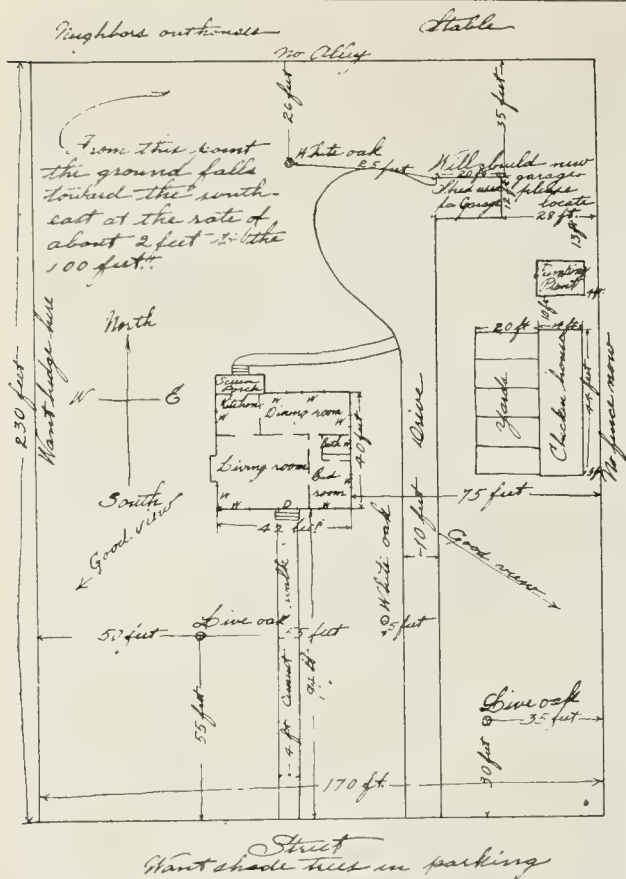 Neighbors outhouses
Stable
No Alley
26 feet
35 feet
White oak
25 feet
From this point
the ground falls
toward the south-
east at the rate of
about 2 feet to the
100 feet
Will build new
garage
20 ft
Shed used please
for Garage locate
28 ft.
13 ft
Pumping
Plant
4 ft
10 ft
20 ft
Yards
Chicken house
44 feet
No fence now
230 feet
Want hedge here
North
W E
South
Good view
Screen
Porch
Kitchen
Dining room
Bath
Living room
Bed
room
W
D
40 feet
42 feet
75 feet
Drive
10 feet
Good view
White oak
5 feet
Live oak
50 feet
55 feet
4 ft cement walk
Live oak
35 feet
30 feet
170 ft.
Street
Want shade trees in parking